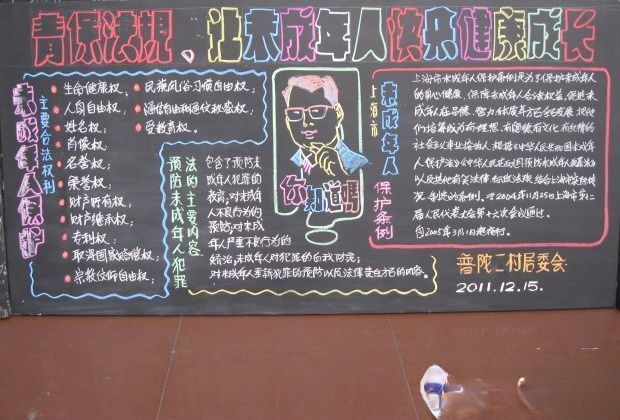 青保法规、让未成年人快乐健康成长
未成年人保护
主要合法权利
生命健康权,
人身自由权,
姓名权,
肖像权,
名誉权,
荣誉权,
财产所有权,
财产继承权,
专利权,
取得国家赔偿权,
宗教信仰自由权,
民族风俗习惯自由权;
通信自由和通信秘密权,
受教育权。
预防未成年人犯罪
法的主要内容
包含了预防未
成年人犯罪的
教育,对未成年
人不良行为的
预防;对未成
年人严重不良行为的
矫治;未成年人对犯罪的自我防范;
对未成年人重新犯罪的预防以及法律责任方面的内容。
你知道吗
上海市
未成年人
保护条例
上海市未成年人保护条例是为了保护未成年人
的身心健康,保障未成年人合法权益,促进未
成年人在品德、智力、体质等方面全面发展,把他
们培养成为有理想、有道德、有文化、有纪律的
社会主义事业接班人,根据《中华人民共和国未成年
人保护法》《中华人民共和国预防未成年人犯罪法》
以及其他有关法律、行政法规,结合上海市实际情
况,制定的条例。于2004年11月25日上海市第十二
届人民代表大会第十六次会议通过。
自2005年3月1日起施行。
普陀二村居委会
2011.12.15.